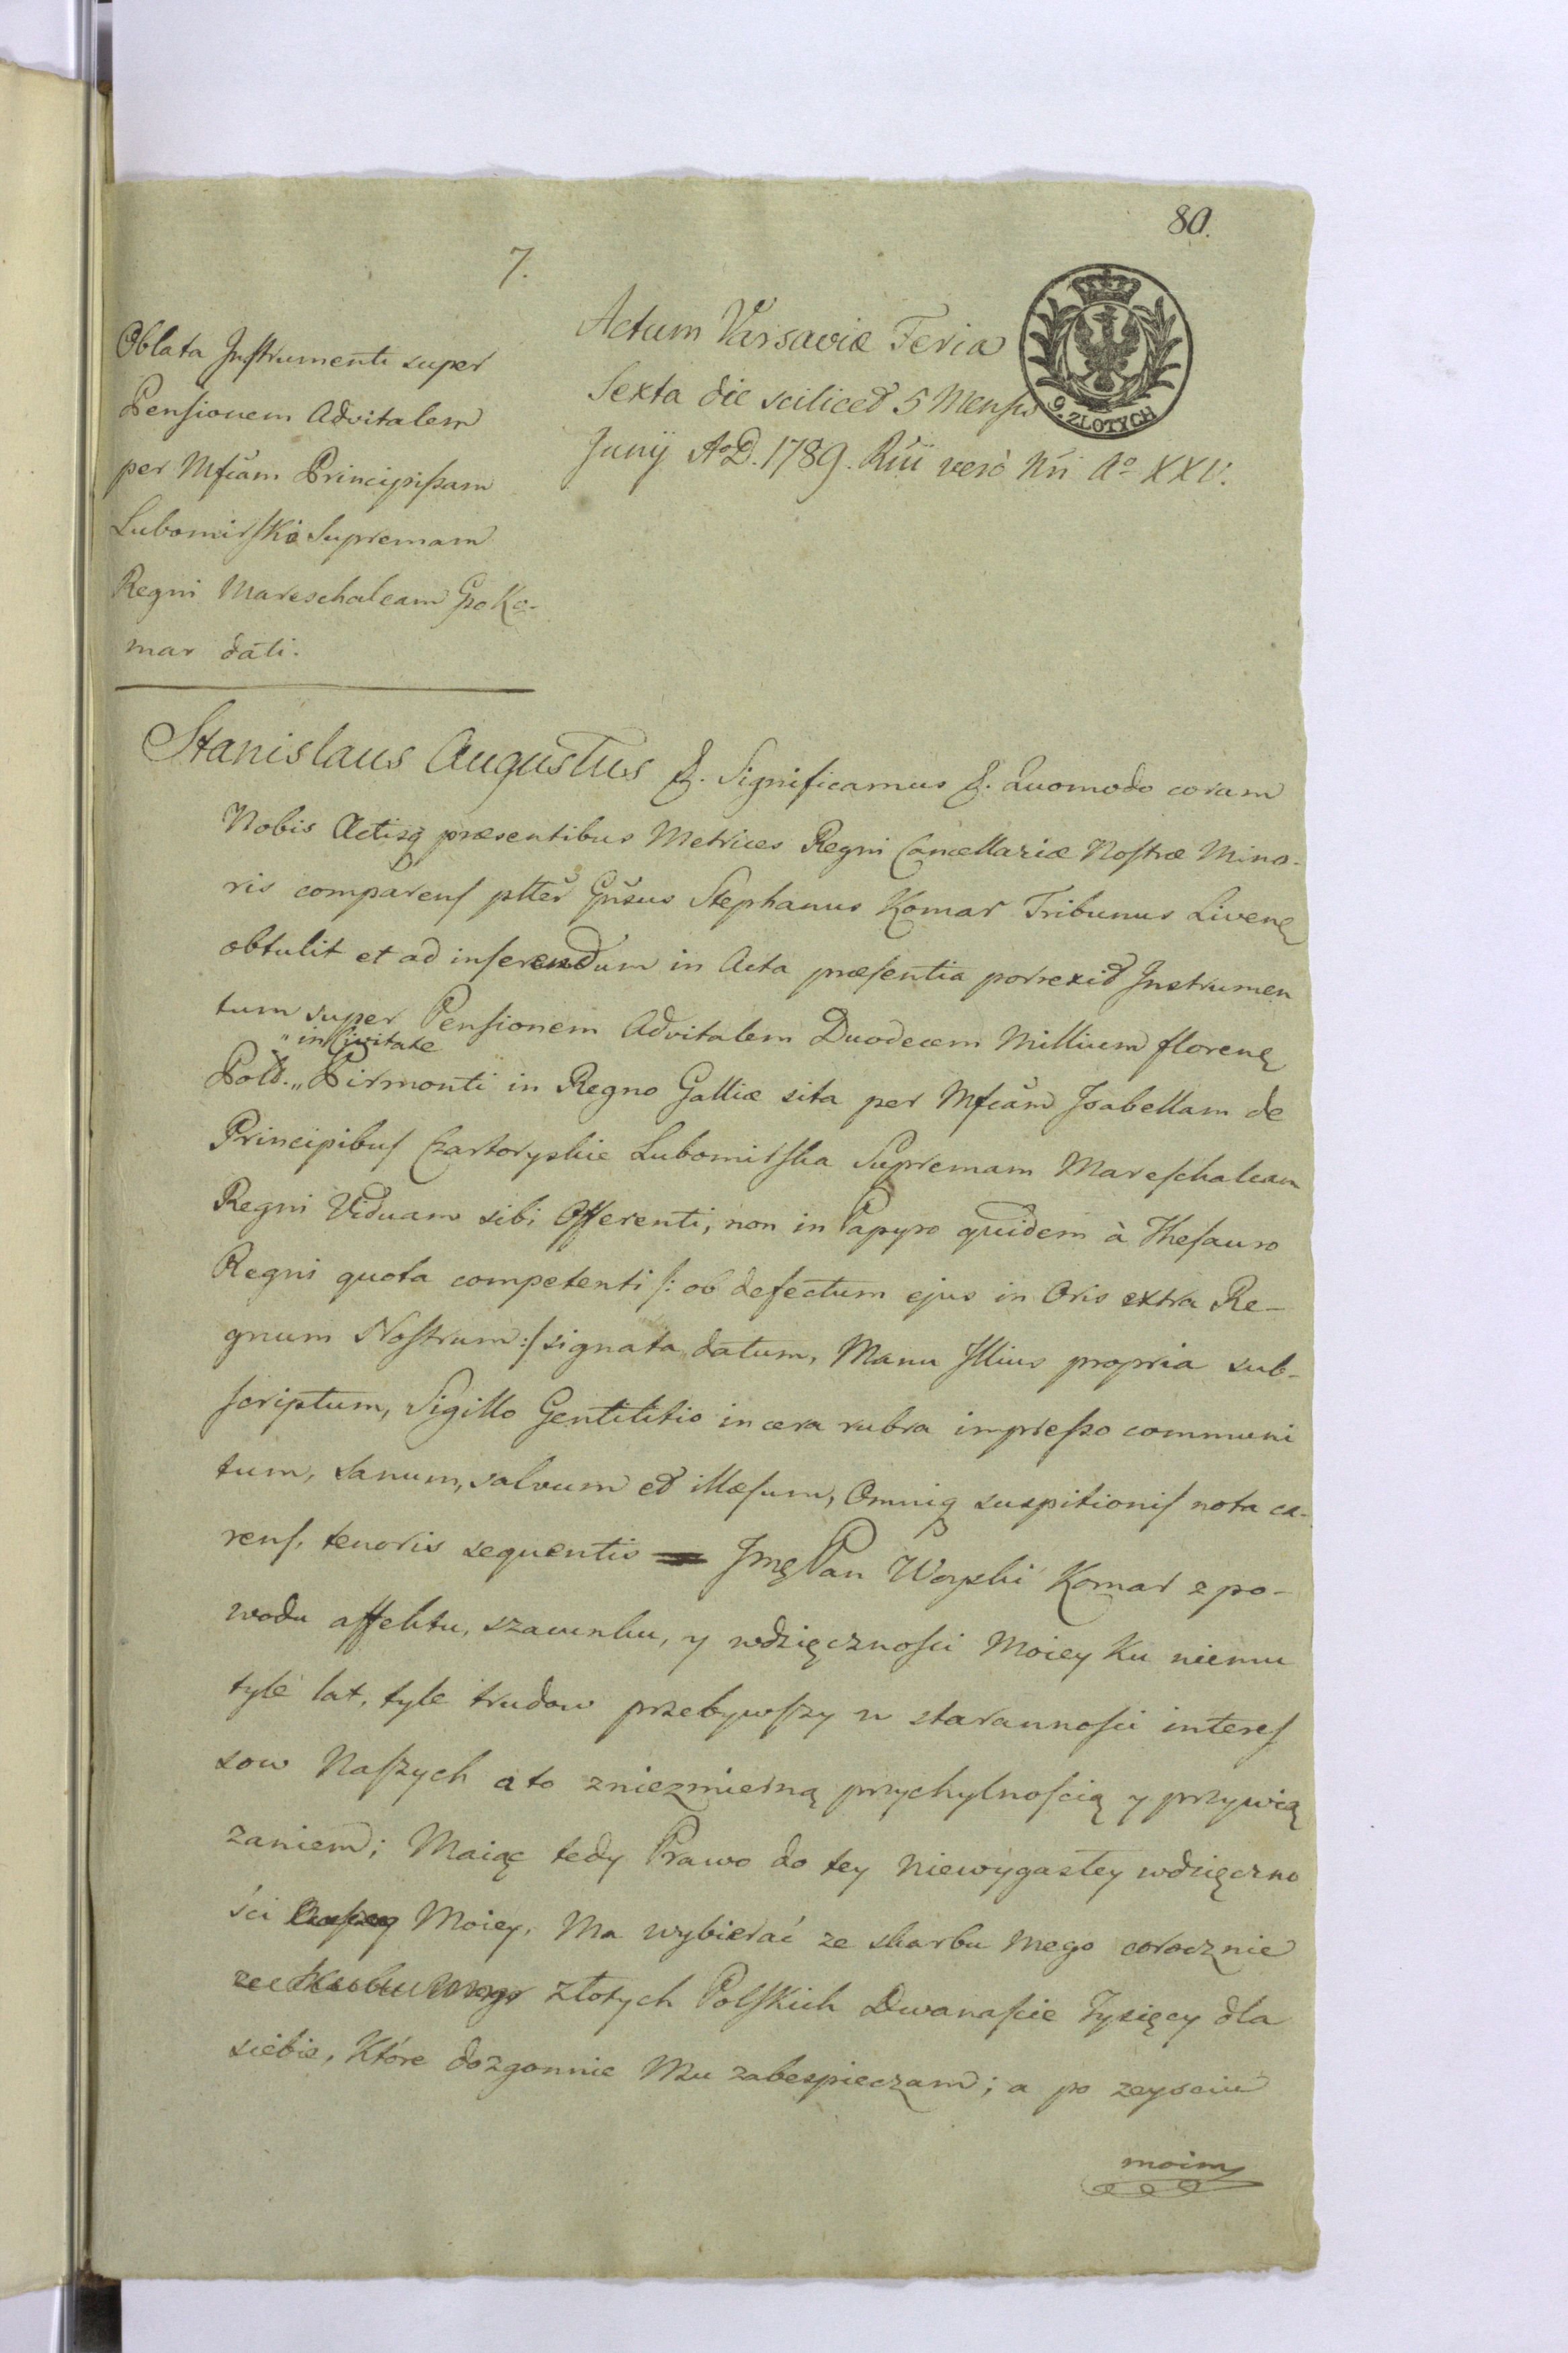 80.
7.
Oblata Inſtrumenti super
Penſionem Advitalem
per Mficam Principiſsam
Lubomirſka Supremam
Regni Mareschalcam Gso Ko-
mar dati.
Actum Varsaviæ Feria
Sexta die scilicet 5 Menſis
Junÿ A.D. 1789. Rńii vero Nri Aº XXV.
9. ZŁOTYCH
Stanislaus Augustus &. Significamus &. Quomodo coram
Nobis Actisq præsentibus Metrices Regni Cancellariæ Noſtræ Mino-
ris comparenſ pltter Gnsus Stephanus Komar Tribunus Livenę
obtulit et ad inſerendum in Acta præſentia porrexit Instrumen
tum super Penſionem Advitalem Duodecem Millium florenę
" in Civitate
Pold. „ Pirmonti in Regno Galliæ sita per Mficam Isabellam de
Principibuſ Czartoryskie Lubomirſka Supremam Mareſchalcam
Regni Viduam sibi Offerenti, non in Papyro quidem à Theſauro
Regni quota competenti /: ob defectum ejus in Oris extra Re-
gnum Noſtrum :/ signata, datum, Manu Illius propria sub-
ſcriptum, Sigillo Gentilitio in cera rubra impreſso communi
tum, sanum, salvum et illæſum, Omniq suspitioniſ nota ca-
renſ, tenoris sequentis — Jmę Pan Woyski Komar z po-
wodu affektu, szacunku, y wdzięcznoſci Moiey Ku niemu
tyle lat, tyle trudow przebywſzy w starannoſci intereſ
sow Naſzych a to z niezmierną przychylnoſcią y przywią
zaniem; Maiąc tedy Prawo do tey Niewygasłey wdzięczno
ści Moiey, Ma wybierać ze skarbu mego corocznie
ze Skarbu Mego złotych Polſkich Dwanaſcie Tysięcy dla
siebie, Które dozgonnie Mu zabespieczam; a po zeysciu
moim